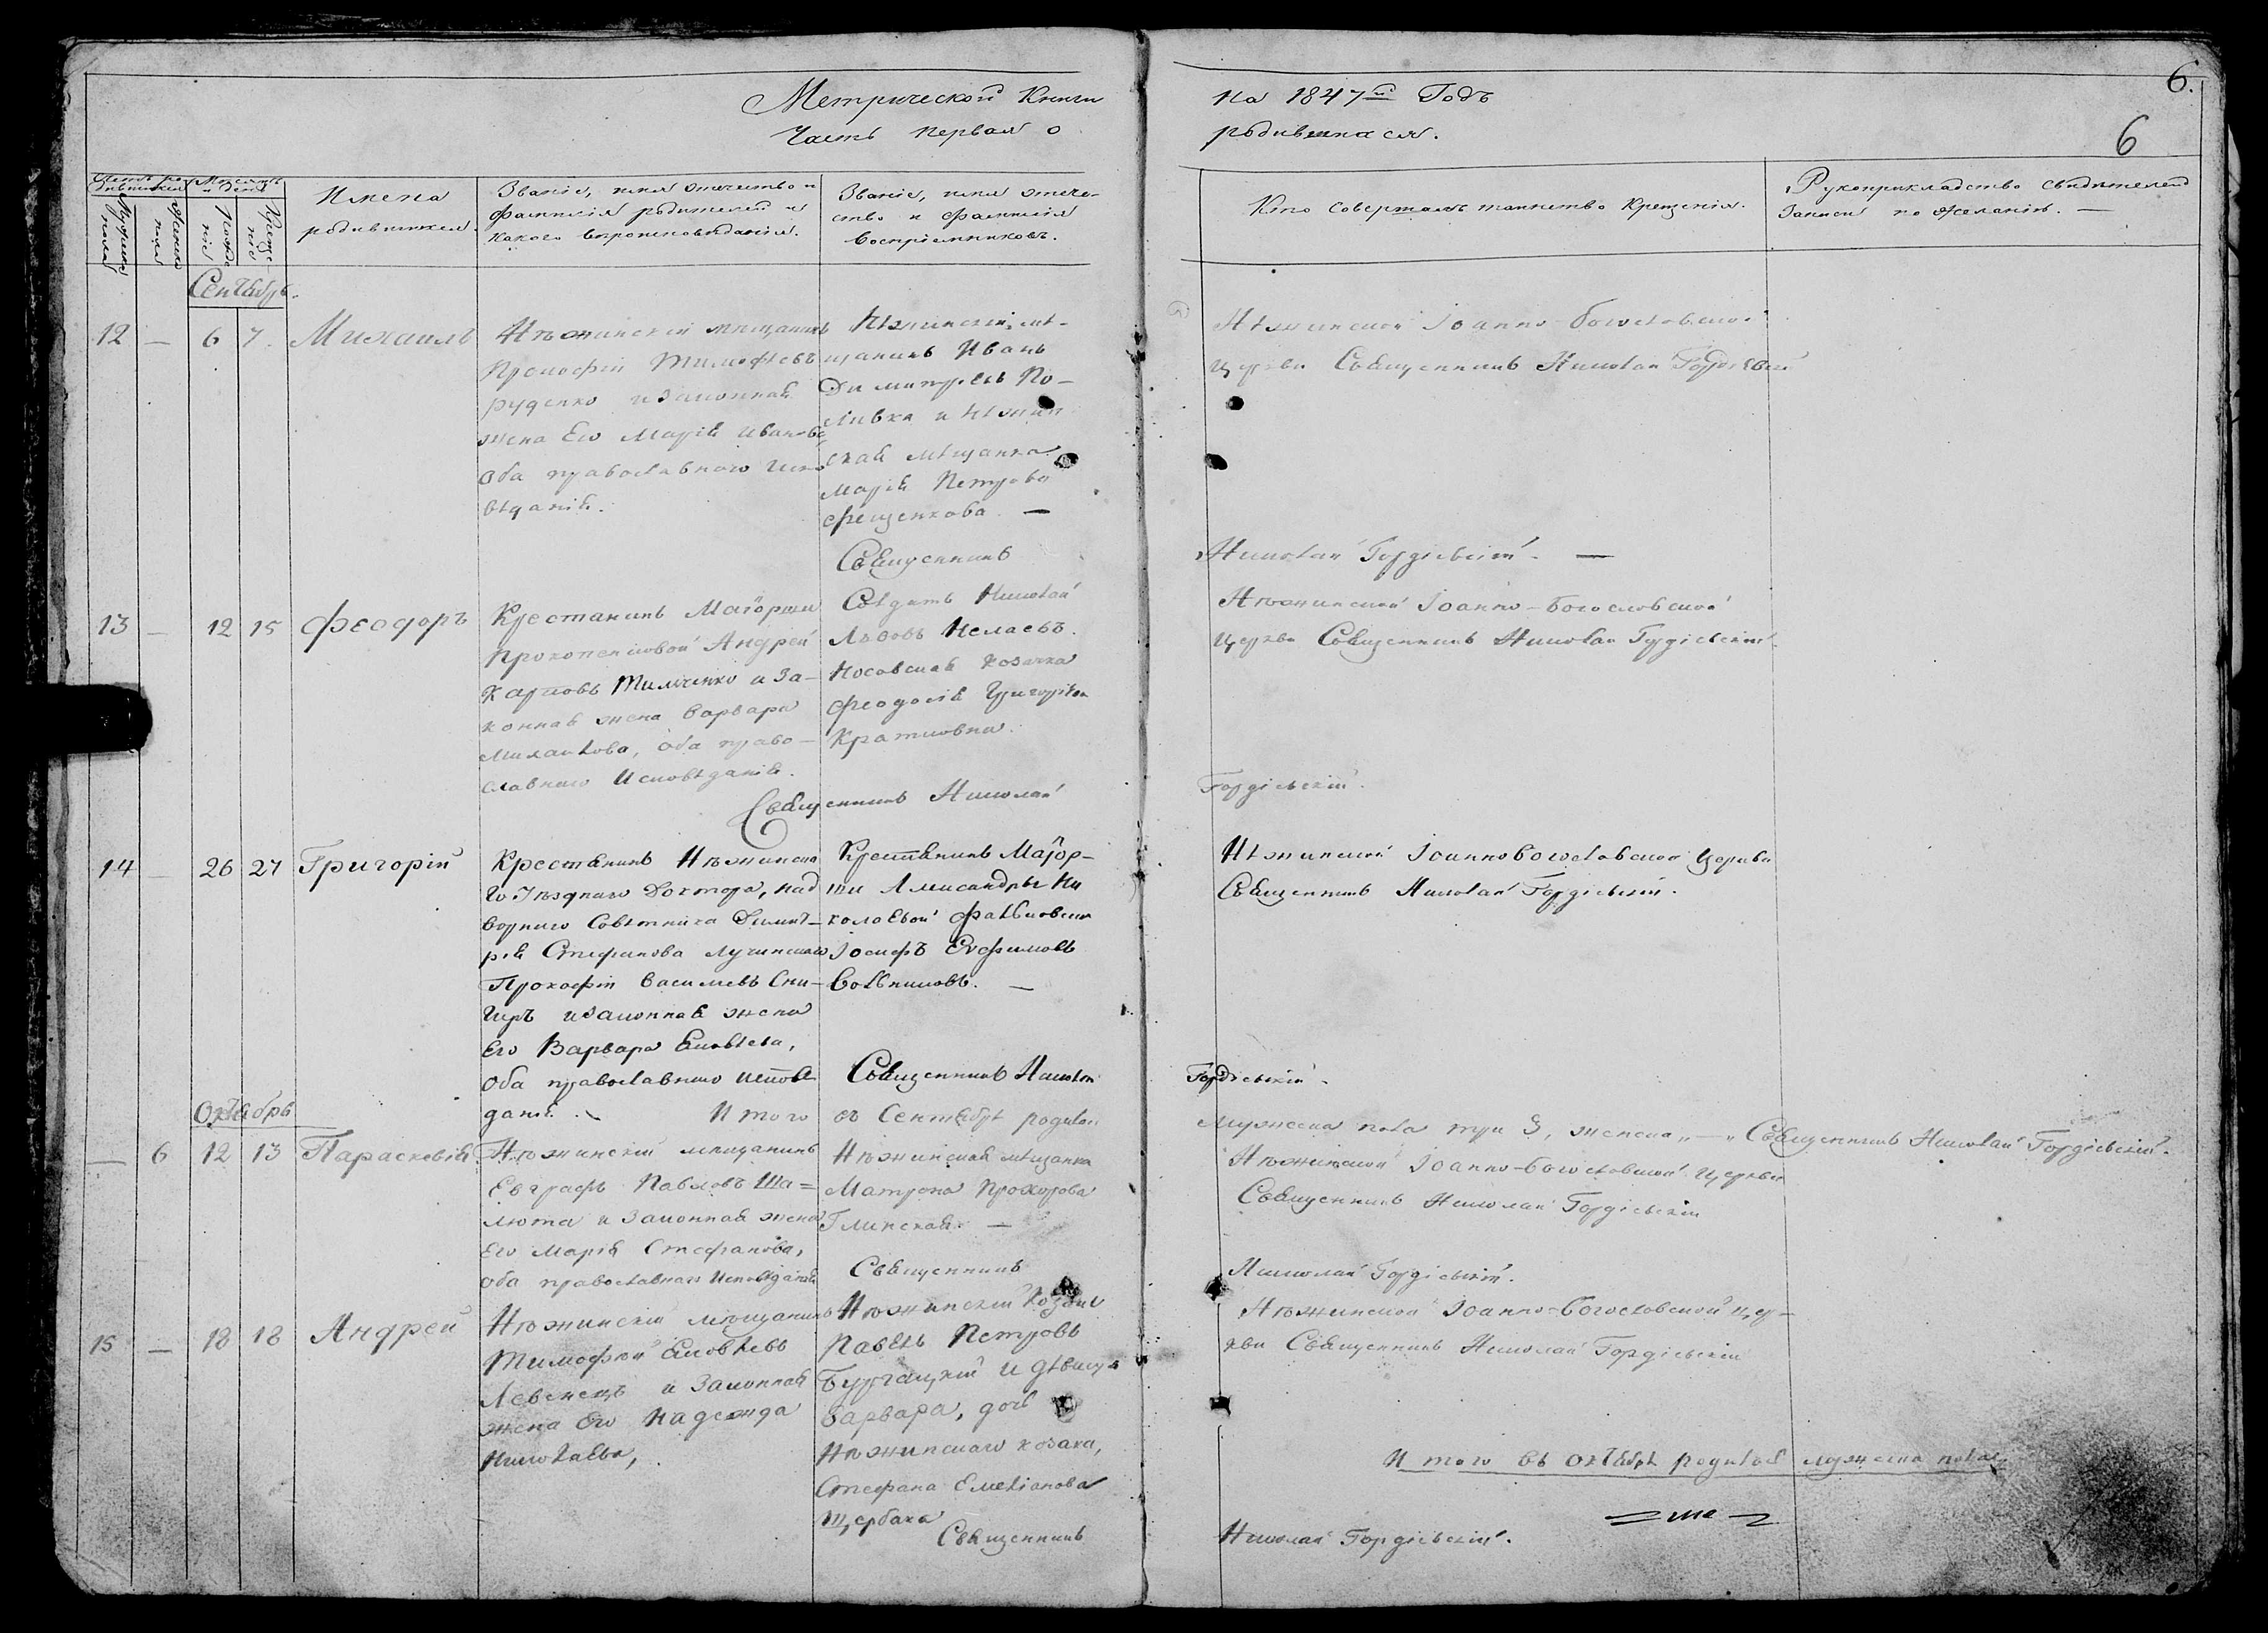 Метрической Книги
Часть первая о
на 1847й Годъ
родившихся.
6.
6
Имена
родившихся.
Званіе, имя отечество и
фамилія родителей и
какого вѣроисповѣданія.
Званіе, имя отече-
ство и фамилія
воспріемниковъ.
Кто совершалъ таинство Крещенія.
Рукоприкладство свидѣтелей
записи по желанію. —
Мужеска
пола
Женска
пола
Рожде
нія
Креще
нія
Сентябрь.
12 — 6 7. Михаилъ
Нѣжинскій мѣщанинъ
Прокофій Тимофѣевъ
Руденко и законная
жена Его Марія Иванова
Оба православнаго Испо
вѣданія.
Нѣжинскій мѣ-
щанинъ Иванъ
Димитріевъ По-
ливка и Нѣжин
ская мѣщанка
Марія Петрова
Фещенкова. —
Священникъ
Нѣжинской Іоанно-Богословской
церкви Священникъ Николай Гордіевскій
Николай Гордіевскій. —
13 — 12 15 Феодоръ
Крестянинъ Маіорши
Прокопенковой Андрей
Карповъ Тимченко и За-
конная жена Варвара
Михайлова, оба право-
славнаго Исповѣданія.
Солдатъ Николай
Львовъ Нелаевъ.
Носовская козачка
Феодосія Григоріева
Священникъ Николай
Нѣжинской Іоанно-Богословской
Церкви Священникъ Николай Гордіевскій.
Гордіевскій.
14 — 26 27 Григорій
Крестянинъ Нѣжинска
го Уѣзднаго Доктора, над
ворнаго Совѣтника Димит-
рія Стефанова Лучинскаго
Прокофій Василіевъ Сни-
гирь и законная жена
Его Варвара Яковлева,
Оба православнаго исповѣ
данія.
Крестянинъ Маіор-
ши Александры Ни
колаевой
Іосифъ Евфимовъ
Священникъ Николай
Нѣжинской Іоанно Богословской Церкви
Священникъ Николай Гордіевскій.
Гордіевскій.
Итого въ Сентябрѣ родилось
мужеска пола три 3, женска „—„ Священникъ Николай Гордіевскій.
Октябрь
— 6 12 13 Параскевія
Нѣжинскій мѣщанинъ
Евграфъ Павловъ Ша=
люта и Законная жена
Его Марія Стефанова,
оба православнаго Исповѣданія
Нѣжинская мѣщанка
Матрона Прохорова
Глинская. —
Священникъ
Нѣжинской Іоанно-Богословской Церкви
Священникъ Николай Гордіевскій
Николай Гордіевскій.
15 — 18 18 Андрей
Нѣжинскій мѣщанинъ
Тимофѣй Яковлевъ
Левенецъ и Законная
жена Его Надежда
Николаева,
Нѣжинскій Козакъ
Павелъ Петровъ
и дѣвица
Варвара, дочь
Нѣжинскаго козака,
Стефана Емеліанова
Щербака
Священникъ
Нѣжинской Іоанно-Богословской цер-
кви Священникъ Николай Гордіевскій
Итого въ Октябрѣ родилось мужеска пола
Николай Гордіевскій.